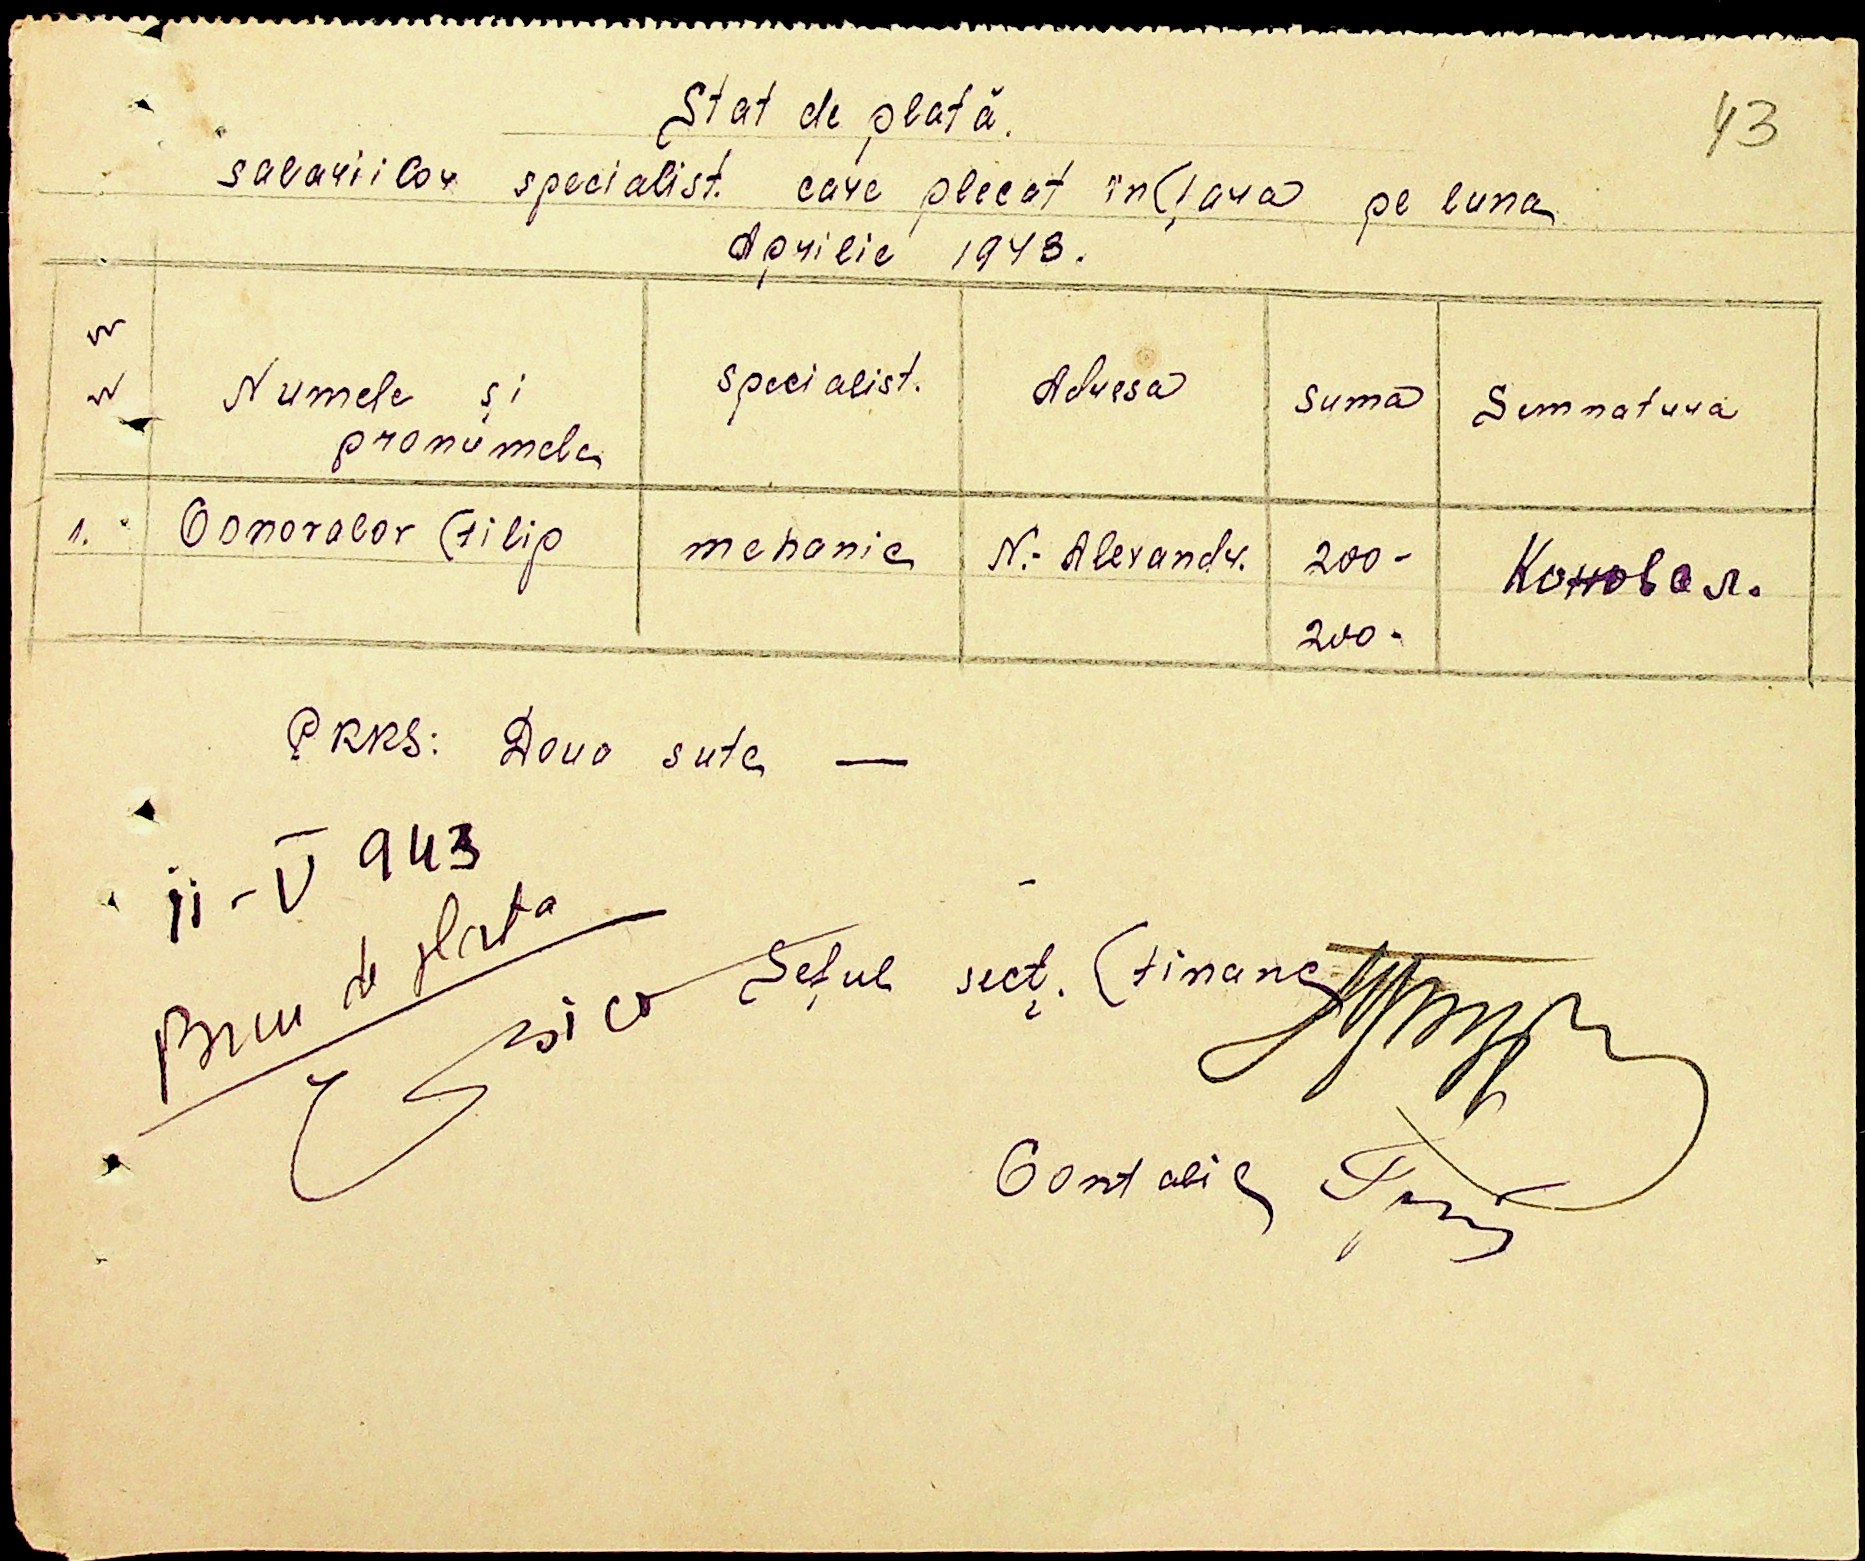 43
Stat de plată.
salariilor specialist. care plecat in țara pe luna
Aprilie 1943.
N N Numele și pronumele specialist. Adresa suma Semnatura
1. Conovalov Filip mehanic N.- Alexandr. 200- Коновал.
200-
RKKS: Doua sute —
11-V 943
Bun de plata
Șeful secț. Financ
Contabil